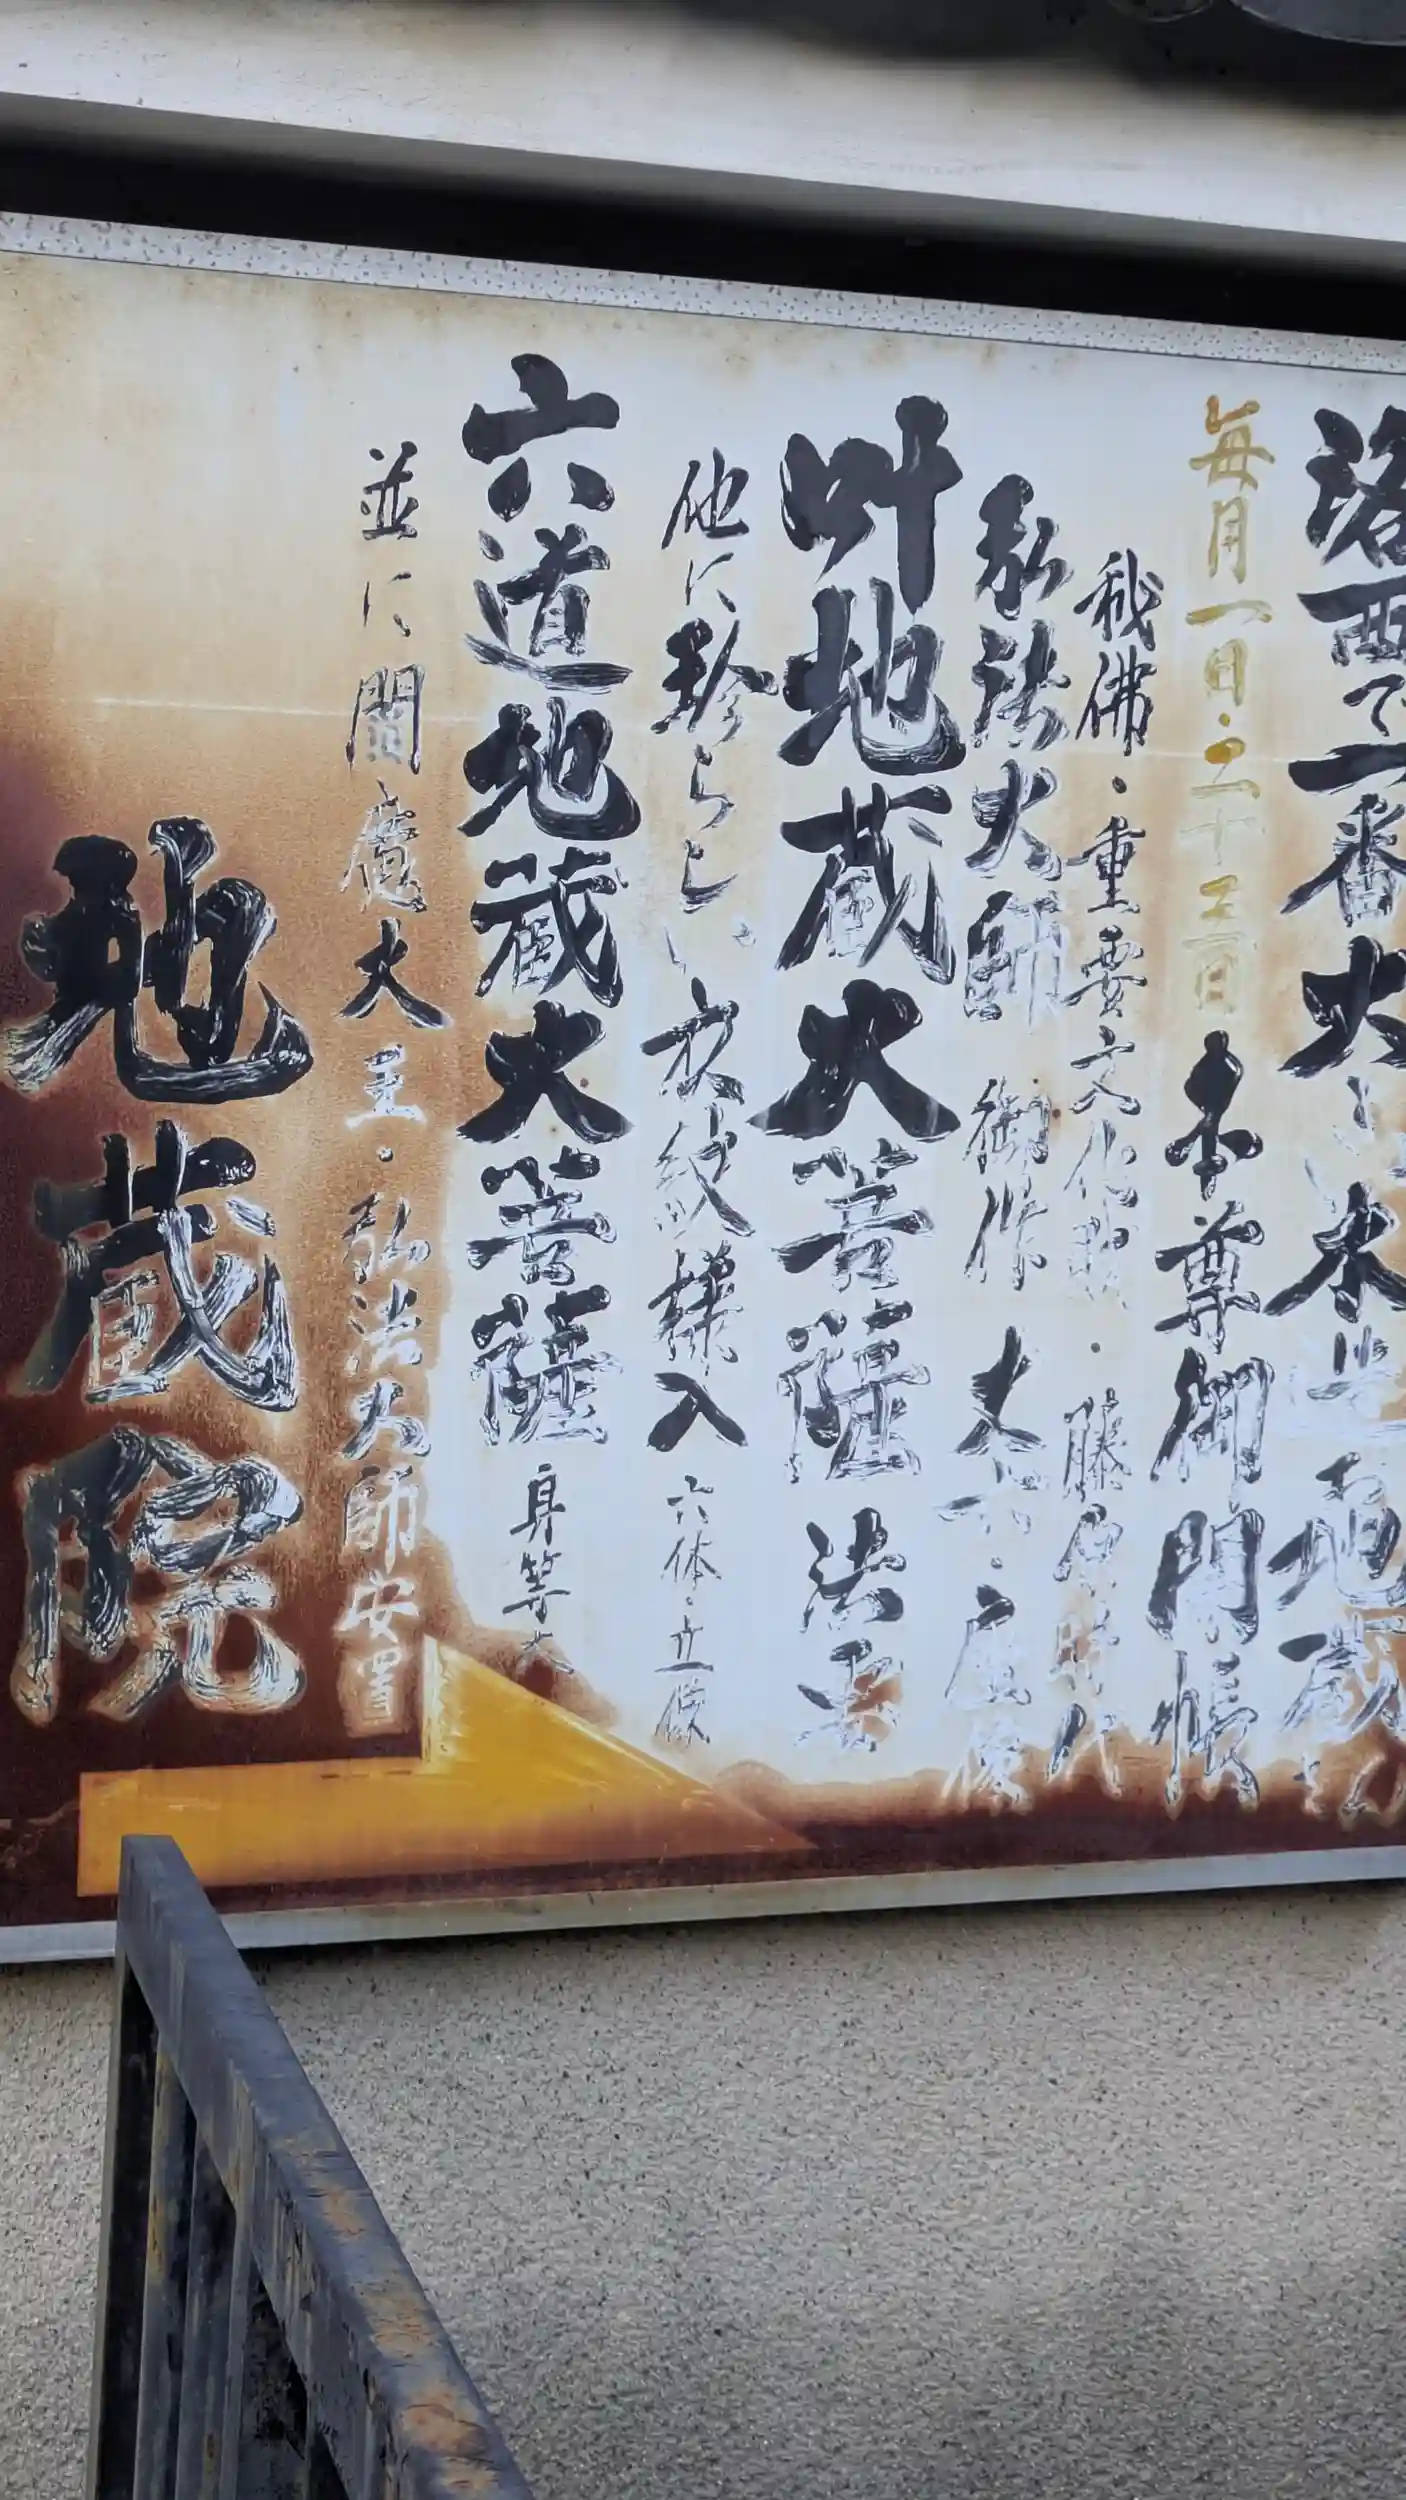 洛西で一番大き木造お地蔵さん
毎月一日・二十三日 本尊御開帳
秘佛・重要文化財・藤原時代
弘法大師 御作 丈六・座像
叶地蔵大菩薩 法要
他に珍らしい衣紋様入 六体・立像
六道地蔵大菩薩 身等大
並に閻魔大王・弘法大師安置
地蔵院